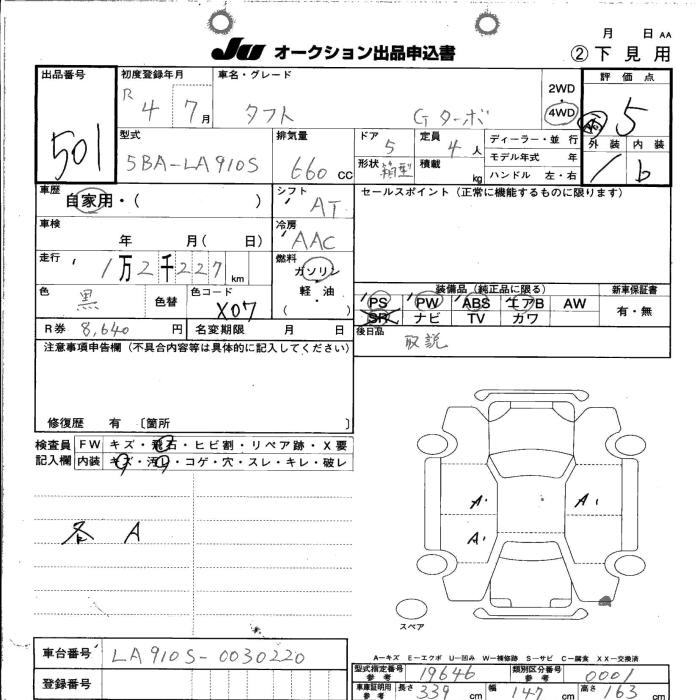 月 日 AA
JU オークション出品申込書 ②下見用
出品番号 初度登録年月 車名・グレード 評価点
R 4 7月 タフト Gターボ 2WD 4WD 5
501
型式 排気量 ドア 定員 ディーラー・並行 外装 内装
5BA-LA910S 660cc 5 4人 モデル年式 年 1 b
形状 箱型 積載 kg ハンドル 左・右
車歴 自家用・( ) シフト AT セールスポイント(正常に機能するものに限ります)
車検 年 月( 日) 冷房 AAC
走行 1万2千227km 燃料 ガソリン
軽・油
( )
色 黒 色替 色コード X07
装備品(純正品に限る) 新車保証書
PS PW ABS エアB AW 有・無
SR ナビ TV カワ
R券 8,640円 名変期限 月 日 後日品 取説
注意事項申告欄(不具合内容等は具体的に記入してください)
修復歴 有 〔箇所 〕
検査員 FW キズ・飛石・ヒビ割・リペア跡・X要
記入欄 内装 キズ・汚れ・コゲ・穴・スレ・キレ・破レ
A' A'
各 A
A'
スペア
A－キズ E－エクボ U－凹み W－補修跡 S－サビ C－腐食 XX－交換済
車台番号 LA910S-0030220
型式指定番号 参考 19646 類別区分番号 参考 0001
登録番号
車庫証明用 参考 長さ 339cm 幅 147cm 高さ 163cm